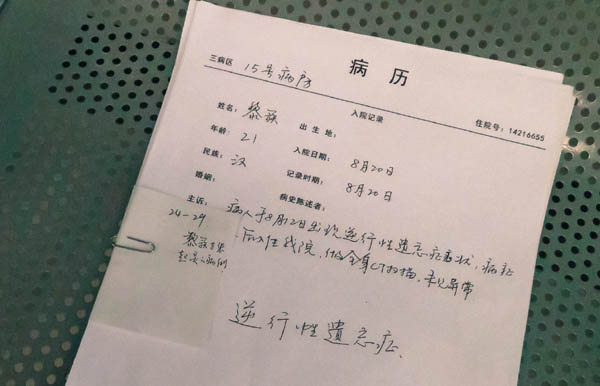 病历
三病区 15号病房
入院记录 住院号：14216655
姓名：黎簇 出生地：
年龄：21 入院日期：8月20日
民族：汉 记录时期：8月20日
婚姻： 病史陈述者：
主诉：病人于8月12日出现逆行性遗忘症症状，病症
后入住我院，做全身CT扫描，未见异常
24-29
黎簇
逆行性遗忘症.